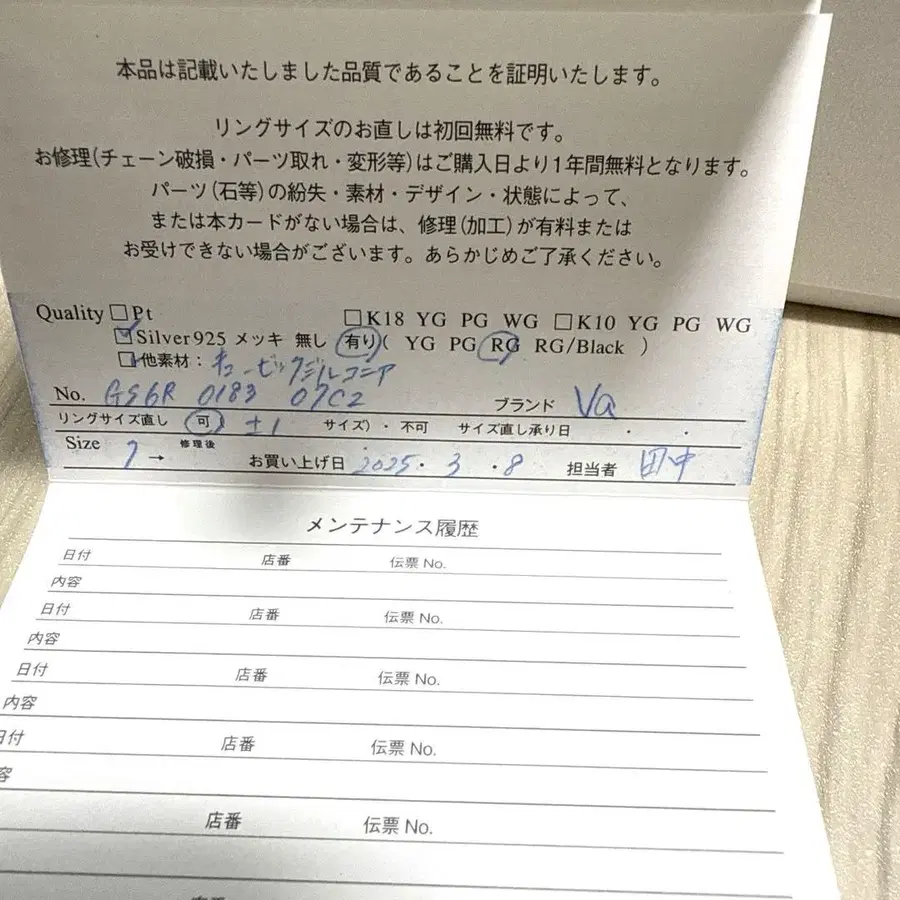 本品は記載いたしました品質であることを証明いたします。
リングサイズのお直しは初回無料です。
お修理(チェーン破損・パーツ取れ・変形等)はご購入日より1年間無料となります。
パーツ(石等)の紛失・素材・デザイン・状態によって、
または本カードがない場合は、修理(加工)が有料または
お受けできない場合がございます。あらかじめご了承ください。
Quality □Pt □K18 YG PG WG □K10 YG PG WG
☑Silver925 メッキ 無し 有り( YG PG RG RG/Black )
□他素材: キュービックジルコニア
No. GS6R 0183 07C2 ブランド Va
リングサイズ直し 可 ±1 サイズ)・不可 サイズ直し承り日 ・ ・
Size 7 → 修理後 お買い上げ日 2025・3・8 担当者 田中
メンテナンス履歴
日付 店番 伝票 No.
内容
日付 店番 伝票 No.
内容
日付 店番 伝票 No.
内容
日付 店番 伝票 No.
容
店番 伝票 No.